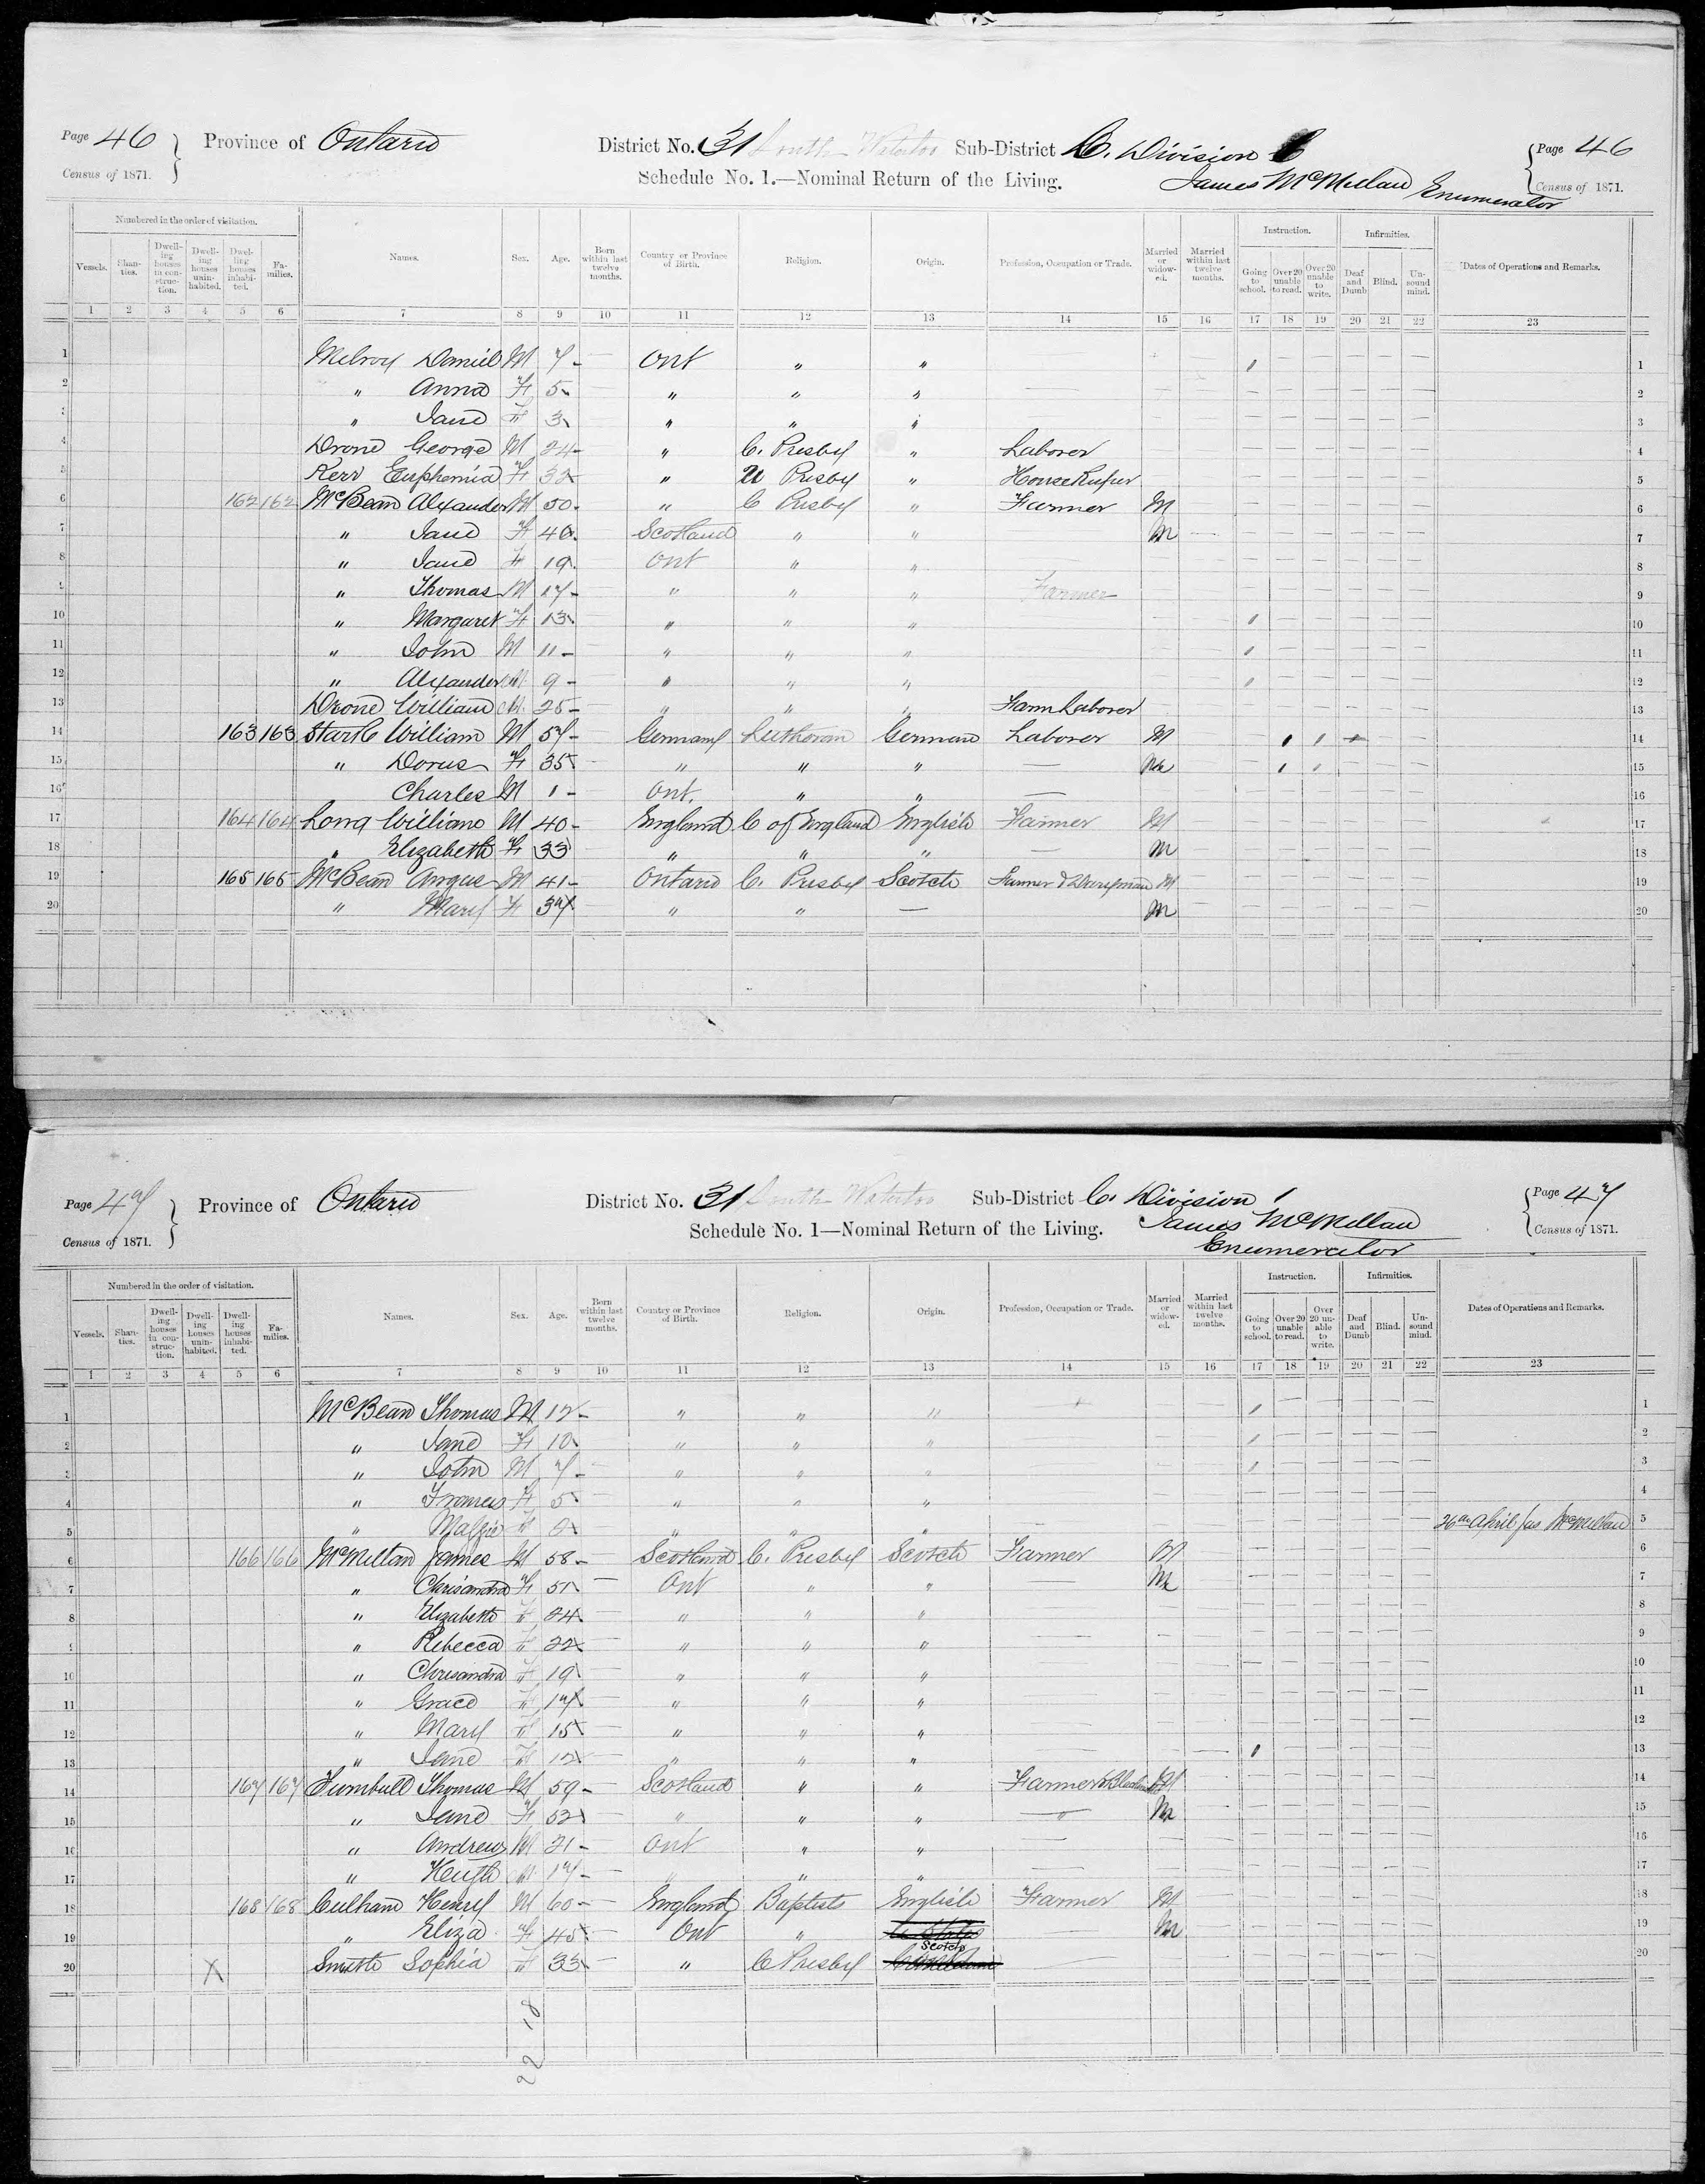 Page 46 Province of Ontario District No. 31 South Waterloo Sub-District C. Division 1 Page 46
Census of 1871. Schedule No. 1.—Nominal Return of the Living. James McMillan Enumerator Census of 1871.
Numbered in the order of visitation. Instruction. Infirmities.
Vessels. Shanties. Dwelling houses in construction. Dwelling houses uninhabited. Dwelling houses inhabited. Families. Names. Sex. Age. Born within last twelve months. Country or Province of Birth. Religion. Origin. Profession, Occupation or Trade. Married or widowed. Married within last twelve months. Going to school. Over 20 unable to read. Over 20 unable to write. Deaf and Dumb Blind. Unsound mind. Dates of Operations and Remarks.
1 2 3 4 5 6 7 8 9 10 11 12 13 14 15 16 17 18 19 20 21 22 23
1 Daniel M 7 — Ont " " — 1 — — — — — 1
2 " Anna F 5 " " " — — — — — — 2
3 " Jane F 3 " " " — — — — — — 3
4 Drone George M 24 — " C. Presby " Laborer — — — — — — 4
5 Kerr Euphemia F 32 " U Presby " — — — — — — 5
6 162 162 McBean Alexander M 50 " C Presby " Farmer M — — — — — — 6
7 " Jane F 46 Scotland " " M — — — — — — 7
8 " Jane F 19 Ont " " — — — — — — 8
9 " Thomas M 17 — " " " Farmer — — — — — — 9
10 " Margaret F 13 " " " 1 — — — — — 10
11 " John M 11 — " " " 1 — — — — — 11
12 " Alexander M 9 — " " " 1 — — — — — 12
13 Drone William M. 25 — " " " Farm Laborer — — — — — — 13
14 163 163 William M 57 — Germany Lutheran German Laborer M — 1 1 — — 14
15 " F 35 " " " — — 1 1 — — — 15
16 Charles M 1 — Ont. " " — — — — — — — 16
17 164 164 Long William M 40 — England C of England English Farmer M — — — — — — 17
18 " Elizabeth F 33 " " " — M — — — — — — 18
19 165 165 McBean Angus M 41 — Ontario C. Presby Scotch Farmer & M — — — — — — 19
20 " Mary F 37 " " — M — — — — — — 20
Page 47 Province of Ontario District No. 31 South Waterloo Sub-District C. Division 1 Page 47
Census of 1871. Schedule No. 1—Nominal Return of the Living. James McMillan Enumerator Census of 1871.
Numbered in the order of visitation. Instruction. Infirmities.
Vessels. Shanties. Dwelling houses in construction. Dwelling houses uninhabited. Dwelling houses inhabited. Families. Names. Sex. Age. Born within last twelve months. Country or Province of Birth. Religion. Origin. Profession, Occupation or Trade. Married or widowed. Married within last twelve months. Going to school. Over 20 unable to read. Over 20 unable to write. Deaf and Dumb Blind. Unsound mind. Dates of Operations and Remarks.
1 2 3 4 5 6 7 8 9 10 11 12 13 14 15 16 17 18 19 20 21 22 23
1 McBean Thomas M 12 — " " " 1 — — — — — 1
2 " Jane F 10 " " " 1 — — — — — 2
3 " John M 7 — " " " 1 — — — — — 3
4 " F 5 " " " — — — — — — 4
5 " F " " " — — — — — — 26th April Jas McMillan 5
6 166 166 McMillan James M 58 — Scotland C. Presby Scotch Farmer M — — — — — — 6
7 " Chrisandra F 51 Ont " " — M — — — — — — 7
8 " Elizabeth F 24 " " " — — — — — — — 8
9 " Rebecca F 22 " " " — — — — — — — 9
10 " Chrisandra F 19 " " " — — — — — — — 10
11 " Grace F 17 " " " — — — — — — — 11
12 " Mary F 15 " " " — — — — — — — 12
13 " Jane F 12 " " " — 1 — — — — — 13
14 167 167 Turnbull Thomas M 59 — Scotland " " Farmer & M — — — — — — 14
15 " Jane F 52 " " " — M — — — — — — 15
16 " Andrew M 21 — Ont " " — — — — — — — 16
17 " Hugh M. 17 — " " " — — — — — — — 17
18 168 168 Culham Henry M 60 — England Baptists English Farmer M — — — — — — 18
19 " Eliza F 45 Ont " — M — — — — — — 19
20 X Smith Sophia F 33 " C Presby Scotch — — — — — — — 20
22 18